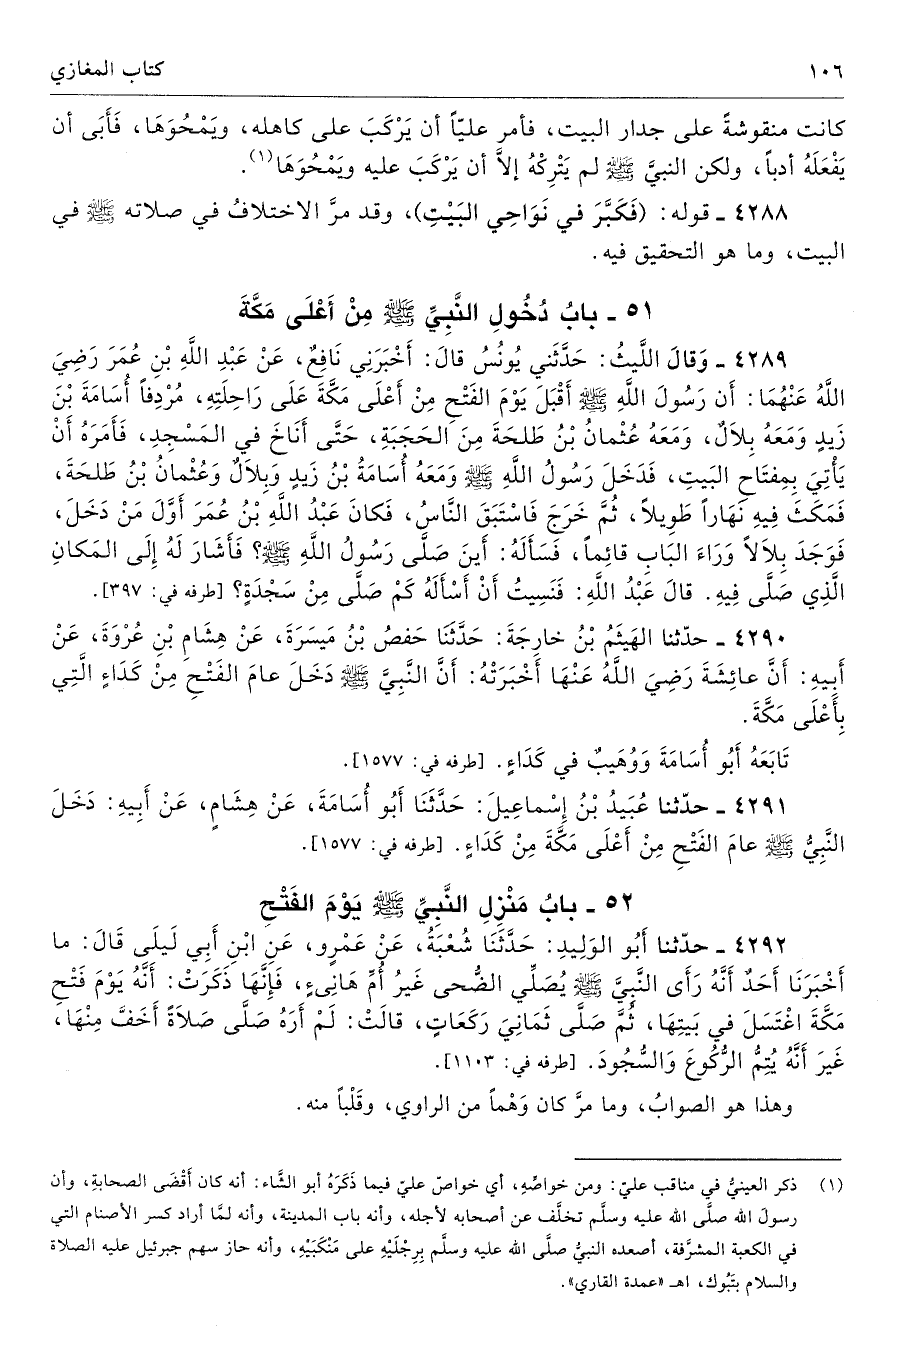 ١٠٦ كتاب المغازي
كانت منقوشةً على جدار البيت، فأمر عليّاً أن يَرْكَبَ على كاهله، ويَمْحُوَهَا، فَأَبَى أن
يَفْعَلَهُ أدباً، ولكن النبيَّ ﷺ لم يَتْرِكْهُ إلاَّ أن يَرْكَبَ عليه ويَمْحُوَهَا(١).
٤٢٨٨ ـ قوله: (فَكَبَّرَ في نَوَاحِي البَيْتِ)، وقد مرَّ الاختلافُ في صلاته ﷺ في
البيت، وما هو التحقيق فيه.
٥١ ـ بابُ دُخُولِ النَّبِيِّ ﷺ مِنْ أَعْلَى مَكَّةَ
٤٢٨٩ ـ وَقالَ اللَّيثُ: حَدَّثَني يُونُسُ قالَ: أَخْبَرَنِي نَافِعٌ، عَنْ عَبْدِ اللَّهِ بْنِ عُمَرَ رَضِيَ
اللَّهُ عَنْهُمَا: أَن رَسُولَ اللَّهِ ﷺ أَقْبَلَ يَوْمَ الفَتْحِ مِنْ أَعْلَى مَكَّةَ عَلَى رَاحِلَتِهِ، مُرْدِفاً أُسَامَةَ بْنَ
زَيدٍ وَمَعَهُ بِلاَلٌ، وَمَعَهُ عُثْمانُ بْنُ طَلحَةَ مِنَ الحَجَبَةِ، حَتَّى أَنَاخَ في المَسْجِدِ، فَأَمَرَهُ أَنْ
يَأْتِيَ بِمِفتَاحِ البَيتِ، فَدَخَلَ رَسُولُ اللَّهِ ﷺ وَمَعَهُ أُسَامَةُ بْنُ زَيدٍ وَبِلاَلٌ وَعُثْمانُ بْنُ طَلحَةَ،
فَمَكَثَ فِيهِ نَهَاراً طَوِيلاً، ثُمَّ خَرَجَ فَاسْتَبَقَ النَّاسُ، فَكانَ عَبْدُ اللَّهِ بْنُ عُمَرَ أَوَّلَ مَنْ دَخَلَ،
فَوَجَدَ بِلاَلاً وَرَاءَ البَابِ قائِماً، فَسَأَلَهُ: أَينَ صَلَّى رَسُولُ اللَّهِ ﷺ؟ فَأَشَارَ لَهُ إِلَى المَكانِ
الَّذِي صَلَّى فِيهِ. قالَ عَبْدُ اللَّهِ: فَنَسِيتُ أَنْ أَسْأَلَهُ كَمْ صَلَّى مِنْ سَجْدَةٍ؟ [طرفه في: ٣٩٧].
٤٢٩٠ ـ حدّثنا الهَيثَمُ بْنُ خارِجَةَ: حَدَّثَنَا حَفصُ بْنُ مَيسَرَةَ، عَنْ هِشَامِ بْنِ عُرْوَةَ، عَنْ
أَبِيهِ: أَنَّ عائِشَةَ رَضِيَ اللَّهُ عَنْهَا أَخْبَرَتْهُ: أَنَّ النَّبِيَّ ﷺ دَخَلَ عامَ الفَتْحِ مِنْ كَدَاءٍ الَّتِي
بِأَعْلَى مَكَّةَ.
تَابَعَهُ أَبُو أُسَامَةَ وَوُهَيبٌ في كَدَاءٍ. [طرفه في: ١٥٧٧].
٤٢٩١ ـ حدّثنا عُبَيدُ بْنُ إِسْماعِيلَ: حَدَّثَنَا أَبُو أُسَامَةَ، عَنْ هِشَامٍ، عَنْ أَبِيهِ: دَخَلَ
النَّبِيُّ ﷺ عامَ الفَتْحِ مِنْ أَعْلَى مَكَّةَ مِنْ كَدَاءٍ. [طرفه في: ١٥٧٧].
٥٢ ـ بابُ مَنْزِلِ النَّبِيِّ ﷺ يَوْمَ الفَتْحِ
٤٢٩٢ ـ حدّثنا أَبُو الوَلِيدِ: حَدَّثَنَا شُعْبَةُ، عَنْ عَمْرٍو، عَنِ ابْنِ أَبِي لَيلَى قَالَ: ما
أَخْبَرَنَا أَحَدٌ أَنَّهُ رَأَى النَّبِيَّ ﷺ يُصَلِّي الضُّحى غَيرُ أُمِّ هَانِىءٍ، فَإِنَّهَا ذَكَرَتْ: أَنَّهُ يَوْمَ فَتْحِ
مَكَّةَ اغْتَسَلَ في بَيتِهَا، ثُمَّ صَلَّى ثَمَانِيَ رَكَعَاتٍ، قالَتْ: لَمْ أَرَهُ صَلَّى صَلاَةً أَخَفَّ مِنْهَا،
غَيرَ أَنَّهُ يُتِمُّ الرُّكُوعَ وَالسُّجُودَ. [طرفه في: ١١٠٣].
وهذا هو الصوابُ، وما مرَّ كان وَهْماً من الراوي، وقَلْباً منه.
(١) ذكر العينيُّ في مناقب عليّ: ومن خواصِّهِ، أي خواصّ عليّ فيما ذَكَرَهُ أبو الثَّاء: أنه كان أَقْضَى الصحابةِ، وأن
رسولَ الله صلَّى الله عليه وسلَّم تخلَّف عن أصحابه لأجله، وأنه باب المدينة، وأنه لمَّا أراد كسر الأصنام التي
في الكعبة المشرَّفة، أصعده النبيُّ صلَّى الله عليه وسلَّم بِرِجْلَيْهِ على مَنْكبَيْهِ، وأنه حاز سهم جبرئيل عليه الصلاة
والسلام بتَبُوك، اهـ «عمدة القاري».